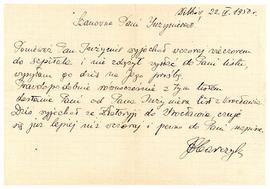 22. V. 1950 r.
Szanowna Pani Inżynierowo!
Ponieważ Pan Inżynier wyjechał wczoraj wieczorem
do szpitala i nie zdążył wysłać do Pani listu,
wysyłam go dziś na Jego prośbę.
Prawdopodobnie równocześnie z tym listem
dostanie Pani od Pana Inżyniera list z Wrocławia.
Dziś wyjechał ze Złotoryi do Wrocławia, czuje
się już lepiej niż wczoraj i pewno do Pani napisze.